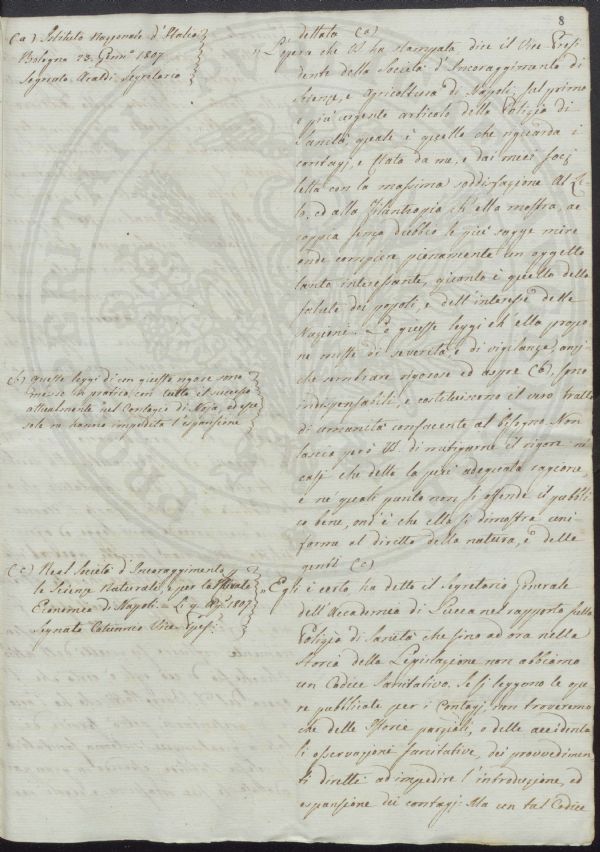 8
(a) Istituto Nazionale d'Italia
Bologna 23. Genn.º 1807
Segnato Araldi Segretario
dettata (a)
"L'opera che VS ha stampata, dice il Vice Presi
dente della Società d'Incoraggimento di
Scienze, e agricoltura di Napoli, sul primo
e più urgente articolo della Polizia di
Sanità, quale è quello che riguarda i
contagj, è stata da me, e dai miei socj
letta con la massima soddisfazione. Al Ze
lo, ed alla Filantropia ch'ella mostra, ac
coppia senza dubbio le più sagge mire
onde compiere pienamente un oggetto
tanto interessante, quanto è quello della
salute dei popoli, e dell'interesse delle
Nazioni. Le quesse leggi ch'ella propo
ne miste di severità, e di vigilanza, anzi
che sembrare rigorose ed aspre (b), sono
indispensabili, e costituiscono il vero tratto
di umanità confacente al bisogno. Non
lascia però VS di mitigarne il rigore ne
casj che detta la più adeguata ragione
e ne' quali punto non si offende il pubbli
co bene, ond'è che ella si dimostra uni
forma al diritto della natura, e delle
genti (c)
(b) queste leggi di con questo rigore sono
messe in pratica con tutto il successo
attualmente nel Contagio di Noja, ed esse
sole ne hanno impedita l'espansione
(c) Real Società d'Incoraggimento
le Scienze Naturali, e per la
Economia di Napoli. Li 9. 1807
Segnato Vice Presi:
"Egli è certo, ha detto il Segretario Generale
dell'Accademia di Lucca nel rapporto sulla
Polizia di Sanità che sino ad ora nella
Storia della Legislazione non abbiamo
un Codice Sanitativo. Se si leggono le ope
re pubblicate per i Contagj non troveremo
che delle Storie parziali, o delle accidenta
li osservazioni sanitative, dei provvedimen
ti diretti ad impedire l'introduzione, ed
espansione dei contagj. Ma un tal Codice